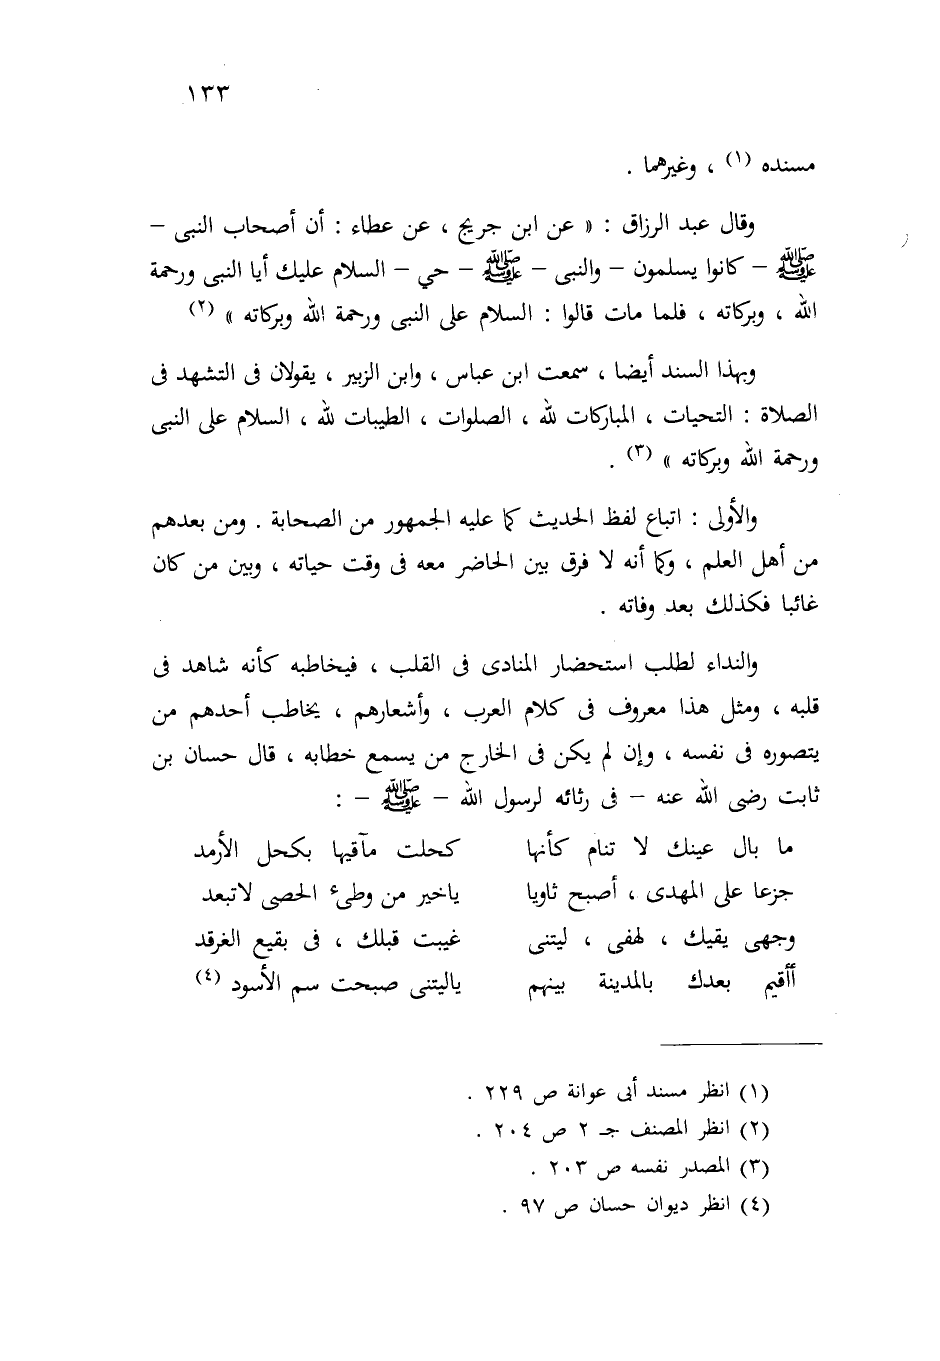 ١٣٣
مسنده (١) ، وغيرهما .
وقال عبد الرزاق : « عن ابن جريج ، عن عطاء : أن أصحاب النبى –
ﷺ – كانوا يسلمون – والنبى – ﷺ – حي – السلام عليك أيا النبى ورحمة
الله ، وبركاته ، فلما مات قالوا : السلام على النبى ورحمة الله وبركاته » (٢)
وبهذا السند أيضا ، سمعت ابن عباس ، وابن الزبير ، يقولان فى التشهد فى
الصلاة : التحيات ، المباركات لله ، الصلوات ، الطيبات لله ، السلام على النبى
ورحمة الله وبركاته » (٣) .
والأولى : اتباع لفظ الحديث كما عليه الجمهور من الصحابة . ومن بعدهم
من أهل العلم ، وكما أنه لا فرق بين الحاضر معه فى وقت حياته ، وبين من كان
غائبا فكذلك بعد وفاته .
والنداء لطلب استحضار المنادى فى القلب ، فيخاطبه كأنه شاهد فى
قلبه ، ومثل هذا معروف فى كلام العرب ، وأشعارهم ، يخاطب أحدهم من
يتصوره فى نفسه ، وإن لم يكن فى الخارج من يسمع خطابه ، قال حسان بن
ثابت رضى الله عنه – فى رثائه لرسول الله – ﷺ – :
ما بال عينك لا تنام كأنها كحلت مآقيها بكحل الأرمد
جزعا على المهدى ، أصبح ثاويا ياخير من وطىء الحصى لاتبعد
وجهى يقيك ، لهفى ، ليتنى غيبت قبلك ، فى بقيع الغرقد
أأقيم بعدك بالمدينة بينهم ياليتنى صبحت سم الأسود (٤)
(١) انظر مسند أبى عوانة ص ٢٢٩ .
(٢) انظر المصنف جـ ٢ ص ٢٠٤ .
(٣) المصدر نفسه ص ٢٠٣ .
(٤) انظر ديوان حسان ص ٩٧ .